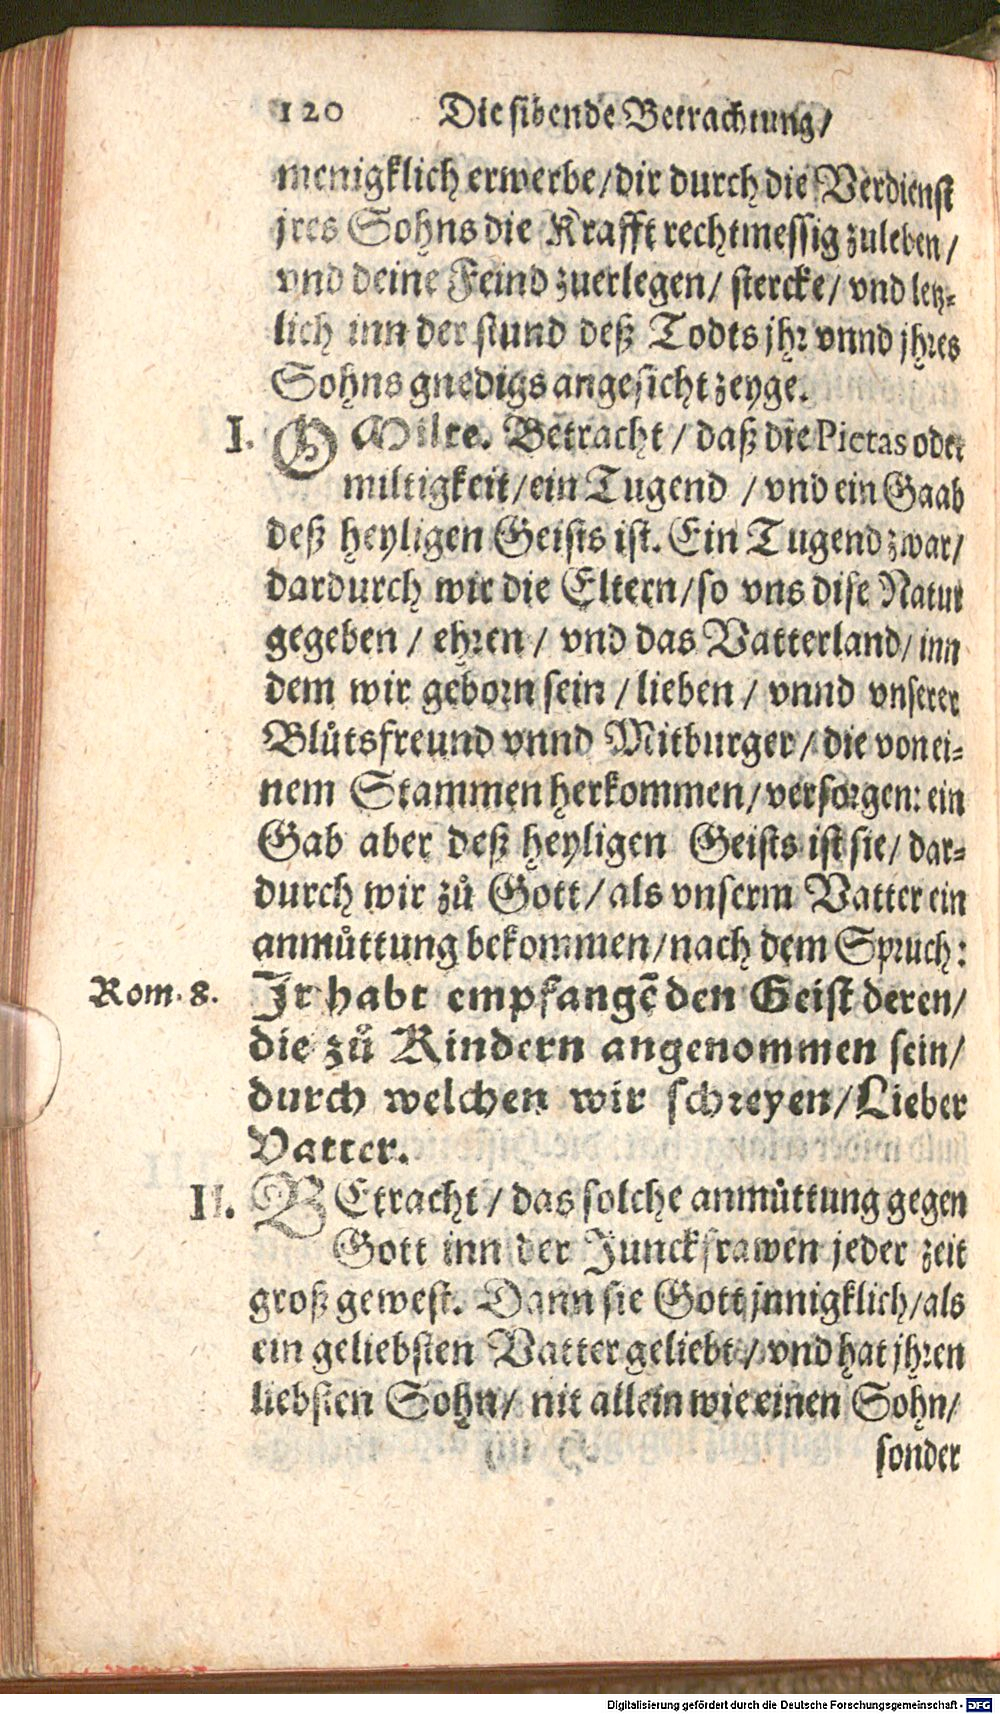 120 Die sibende Betrachtung/
menigklich erwerbe/dir durch die Verdienst
jres Sohns die Krafft rechtmessig zuleben/
vnd deine Feind zuerlegen/ stercke/ vnd letz-
lich inn der stund deß Todts jhr vnnd jhres
Sohns gnedigs angesicht zeyge.
I. O Milte. Betracht/ daß die Pietas oder
miltigkeit/ein Tugend /vnd ein Gaab
deß heyligen Geists ist. Ein Tugend zwar/
dardurch wir die Eltern/so vns dise Natur
gegeben / ehren / vnd das Vatterland/ inn
dem wir geborn sein /lieben / vnnd vnserer
Blůtsfreund vnnd Mitburger/ die von ei-
nem Stammen herkommen/versorgen: ein
Gab aber deß heyligen Geists ist sie/ dar-
durch wir zů Gott/als vnserm Vatter ein
anmůttung bekommen/nach dem Spruch:
Rom. 8. Ir habt empfangẽ den Geist deren/
die zů Kindern angenommen sein/
durch welchen wir schreyen/Lieber
Vatter.
II. BEtracht/ das solche anmůttung gegen
Gott inn der Junckfrawen jeder zeit
groß gewest. Dann sie Gott jnnigklich/als
ein geliebsten Vatter geliebt/ vnd hat jhren
liebsten Sohn/ nit allein wie einen Sohn/
sonder
Digitalisierung gefördert durch die Deutsche Forschungsgemeinschaft - DFG